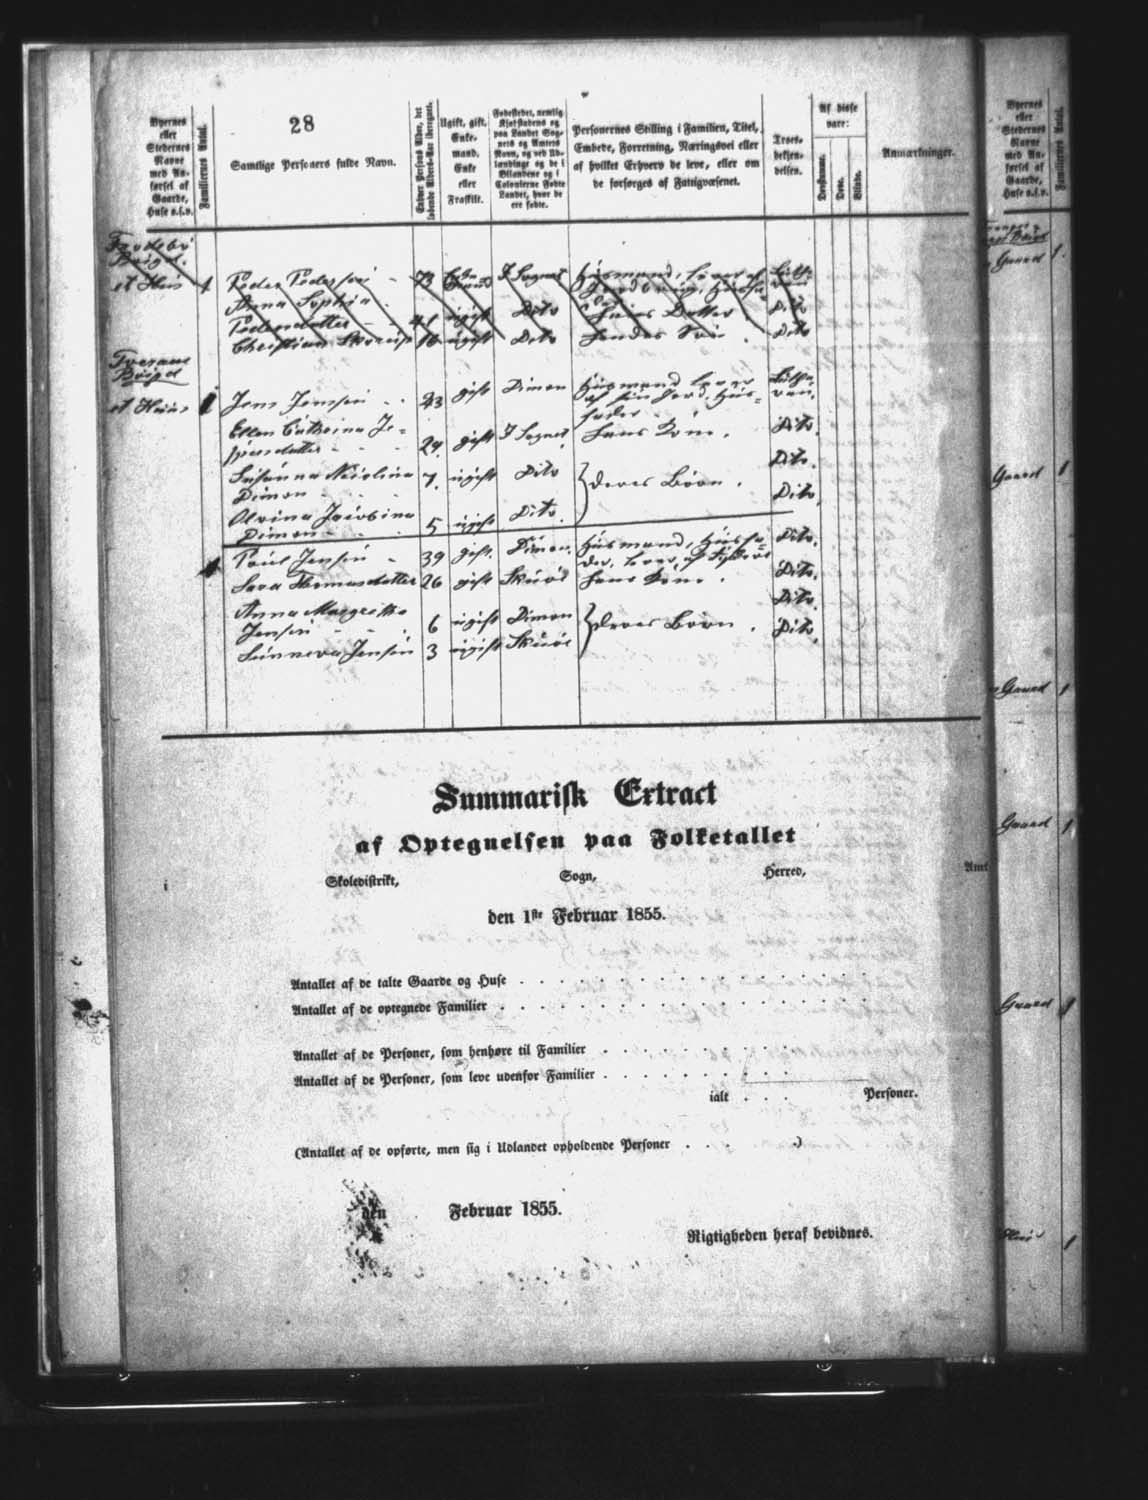 28
Byernes
eller
Stedernes
Navne
med An-
førsel af
Gaarde,
Huse o.s.v.
Familiernes Antal.
Samtlige Personers fulde Navn.
Enhver Persons Alder, det
løbende Alders-Aar iberegnet.
Ugift, gift,
Enke-
mand,
Enke
eller
Fraskilt.
Fødestedet, nemlig
Kjøbstadens og
paa Landet Sog-
nets og Amtets
Navn, og ved Ud-
lændinge og de i
Bilandene og i
Colonierne Fødte
Landet, hvor de
ere fødte.
Personernes Stilling i Familien, Titel,
Embede, Forretning, Næringsvei eller
af hvilket Erhverv de leve, eller om
de forsørges af Fattigvæsenet.
Troes-
bekjen-
delsen.
Af disse
vare:
Døvstumme.
Døve.
Blinde.
Anmærkninger.
Bøigd.
et Huus 1
73 I Sognet
Anna Sophia
41 ugift Dito Datter Dito
Christian 16 ugift Dito Søn Dito
Bøigd
et Huus 1 Jens Jensen 43 gift Dimon Huusmand, lever
af sin Jord, Huus-
fader
Ellen Cathrina
29 gift I Sognet Hans Kone. Dito.
Susanna Nicolina 7. ugift Dito Deres Børn. Dito.
Dimon
Olvina Jacobina 5 ugift Dito. Dito.
Dimon
1 Poul Jensen 39 gift. Dimon. Huusmand, Huusfa-
der, lever af Dito.
Sara Thomasdatter 26 gift Skuøe Hans Kone. Dito.
Anna Margretha
Jensen 6 ugift Dimon Deres Børn. Dito.
Sunneva Jensen 3 ugift Skuøe Dito.
Summarisk Extract
af Optegnelsen paa Folketallet
Skoledistrikt, Sogn, Herred, Amt
den 1ste Februar 1855.
Antallet af de talte Gaarde og Huse
Antallet af de optegnede Familier
Antallet af de Personer, som henhøre til Familier
Antallet af de Personer, som leve udenfor Familier
ialt . . . Personer.
(Antallet af de opførte, men sig i Udlandet opholdende Personer . . . .)
den Februar 1855.
Rigtigheden heraf bevidnes.
Byernes
eller
Stedernes
Navne
med An-
førsel af
Gaarde,
Huse o.s.v.
Familiernes Antal.
Gaard 1.
Gaard 1
Gaard 1
Gaard 1
Gaard 1
1